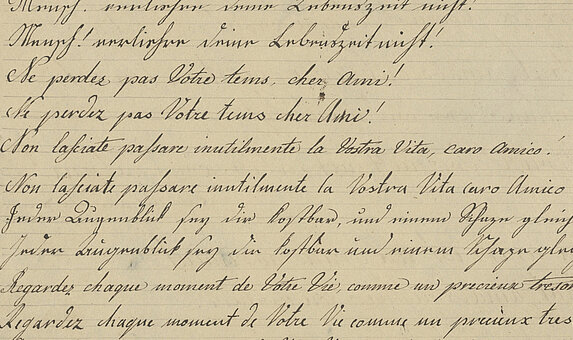 Mensch. verliehre deine Lebenszeit nicht!
Mensch! verliehre deine Lebenszeit nicht!
Ne perdez pas Votre tems, cher Ami!
Ne perdez pas Votre tems cher Ami!
Non laſciate paſsare inutilmente la Vostra Vita, caro Amico!
Non laſciate paſsare inutilmente la Vostra Vita caro Amico
Jeder Augenblick sey dir kostbar, und einem Schaze gleich
Jeder Augenblick sey dir kostbar und einem Schaze glei
Regardez chaque moment de Vôtre Vie, comme un precieux tresor
Regardez chaque moment de Votre Vie comme un precieux tres